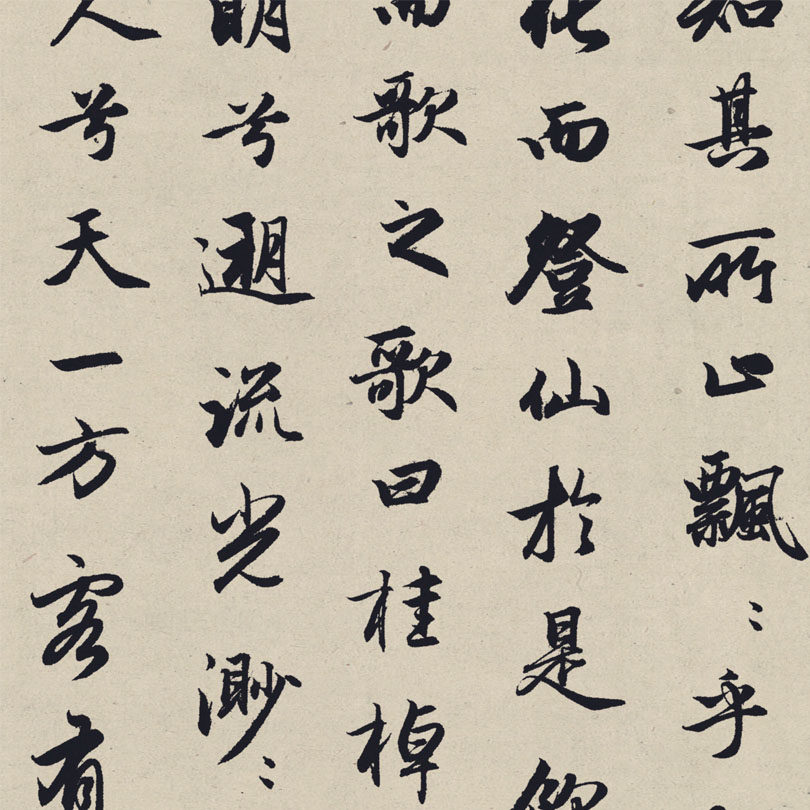 知其所止飄〻乎
化而登仙於是飲
而歌之歌曰桂棹
明兮遡流光渺〻
人兮天一方客有